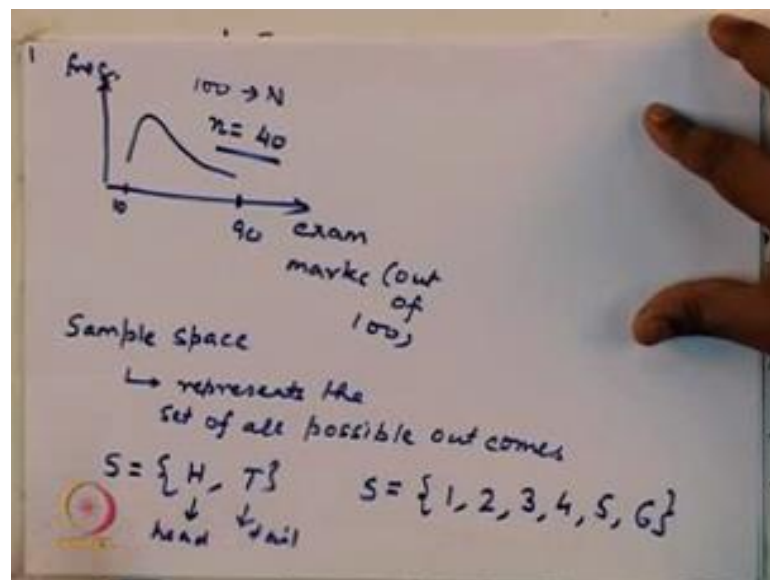 1
freq.
100 → N
n = 40
10
90
exam
marks (out
of
100)
Sample space
↳ represents the
set of all possible outcomes
S = { H, T}
↓ ↓
head tail
S = { 1, 2, 3, 4, 5, 6}